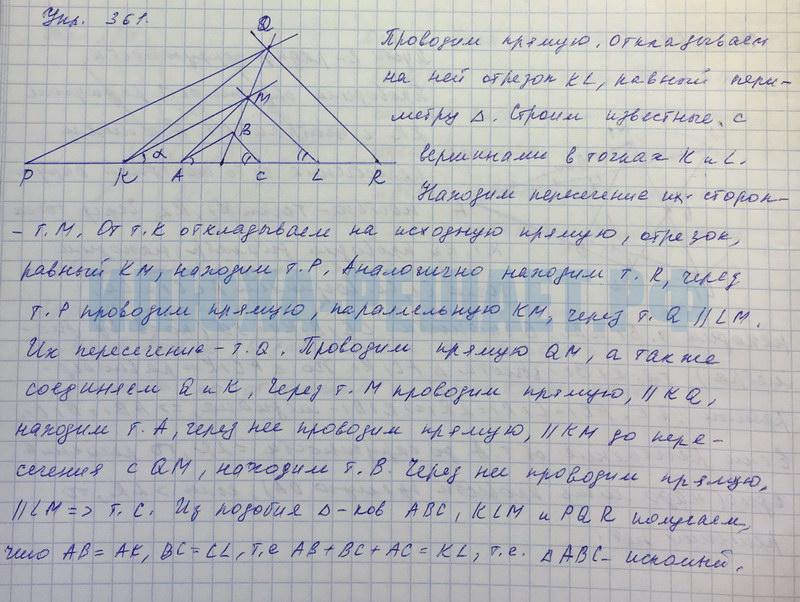 Упр. 361.
Q
M
B
α
P K A C L R
Проводим прямую. Откладываем
на ней отрезок KL, равный пери-
метру Δ. Строим известные с
вершинами в точках K и L.
Находим пересечение их сторон-
- т. M. От т. K откладываем на исходную прямую, отрезок,
равный KM, находим т. P. Аналогично находим т. R, через
т. P проводим прямую, параллельную KM, через т. Q // LM.
Их пересечение - т. Q. Проводим прямую QM, а также
соединяем Q и K, через т. M проводим прямую, // KQ,
находим т. A, через нее проводим прямую, // KM до пере-
сечения с QM, находим т. B. Через нее проводим прямую,
// LM => т. C. Из подобия Δ-ков ABC, KLM и PQR получаем,
что AB = AK, BC = CL, т.е AB + BC + AC = KL, т.е. ΔABC - искомый.